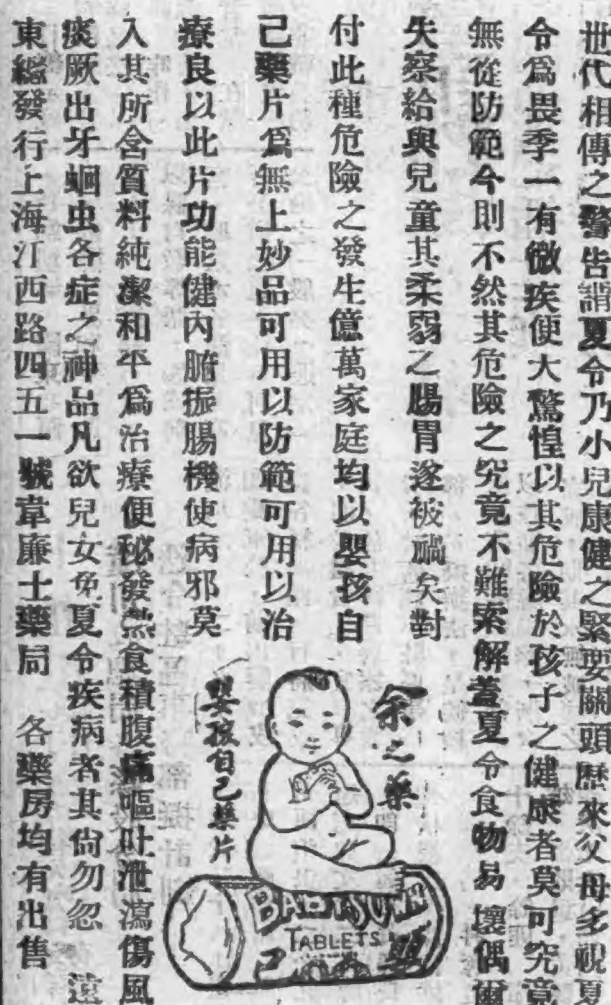 世代相傳之警告謂夏令乃小兒康健之緊要關頭歷來父母多視夏
令爲畏季一有微疾便大驚惶以其危險於孩子之健康者莫可究竟
無從防範今則不然其危險之究竟不難索解蓋夏令食物易壞偶爾
失察給與兒童其柔弱之腸胃遂被禍矣對
付此種危險之發生億萬家庭均以嬰孩自
己藥片爲無上妙品可用以防範可用以治
療良以此片功能健內腑振腸機使病邪莫
入其所含質料純潔和平爲治療便秘發熱食積腹痛嘔吐泄瀉傷風
痰厥出牙蛔虫各症之神品凡欲兒女免夏令疾病者其尙勿忽 遠
東總發行上海江西路四五一號韋廉士藥局 各藥房均有出售
余之藥
嬰孩自己藥片
BABY'S OWN
TABLETS
己